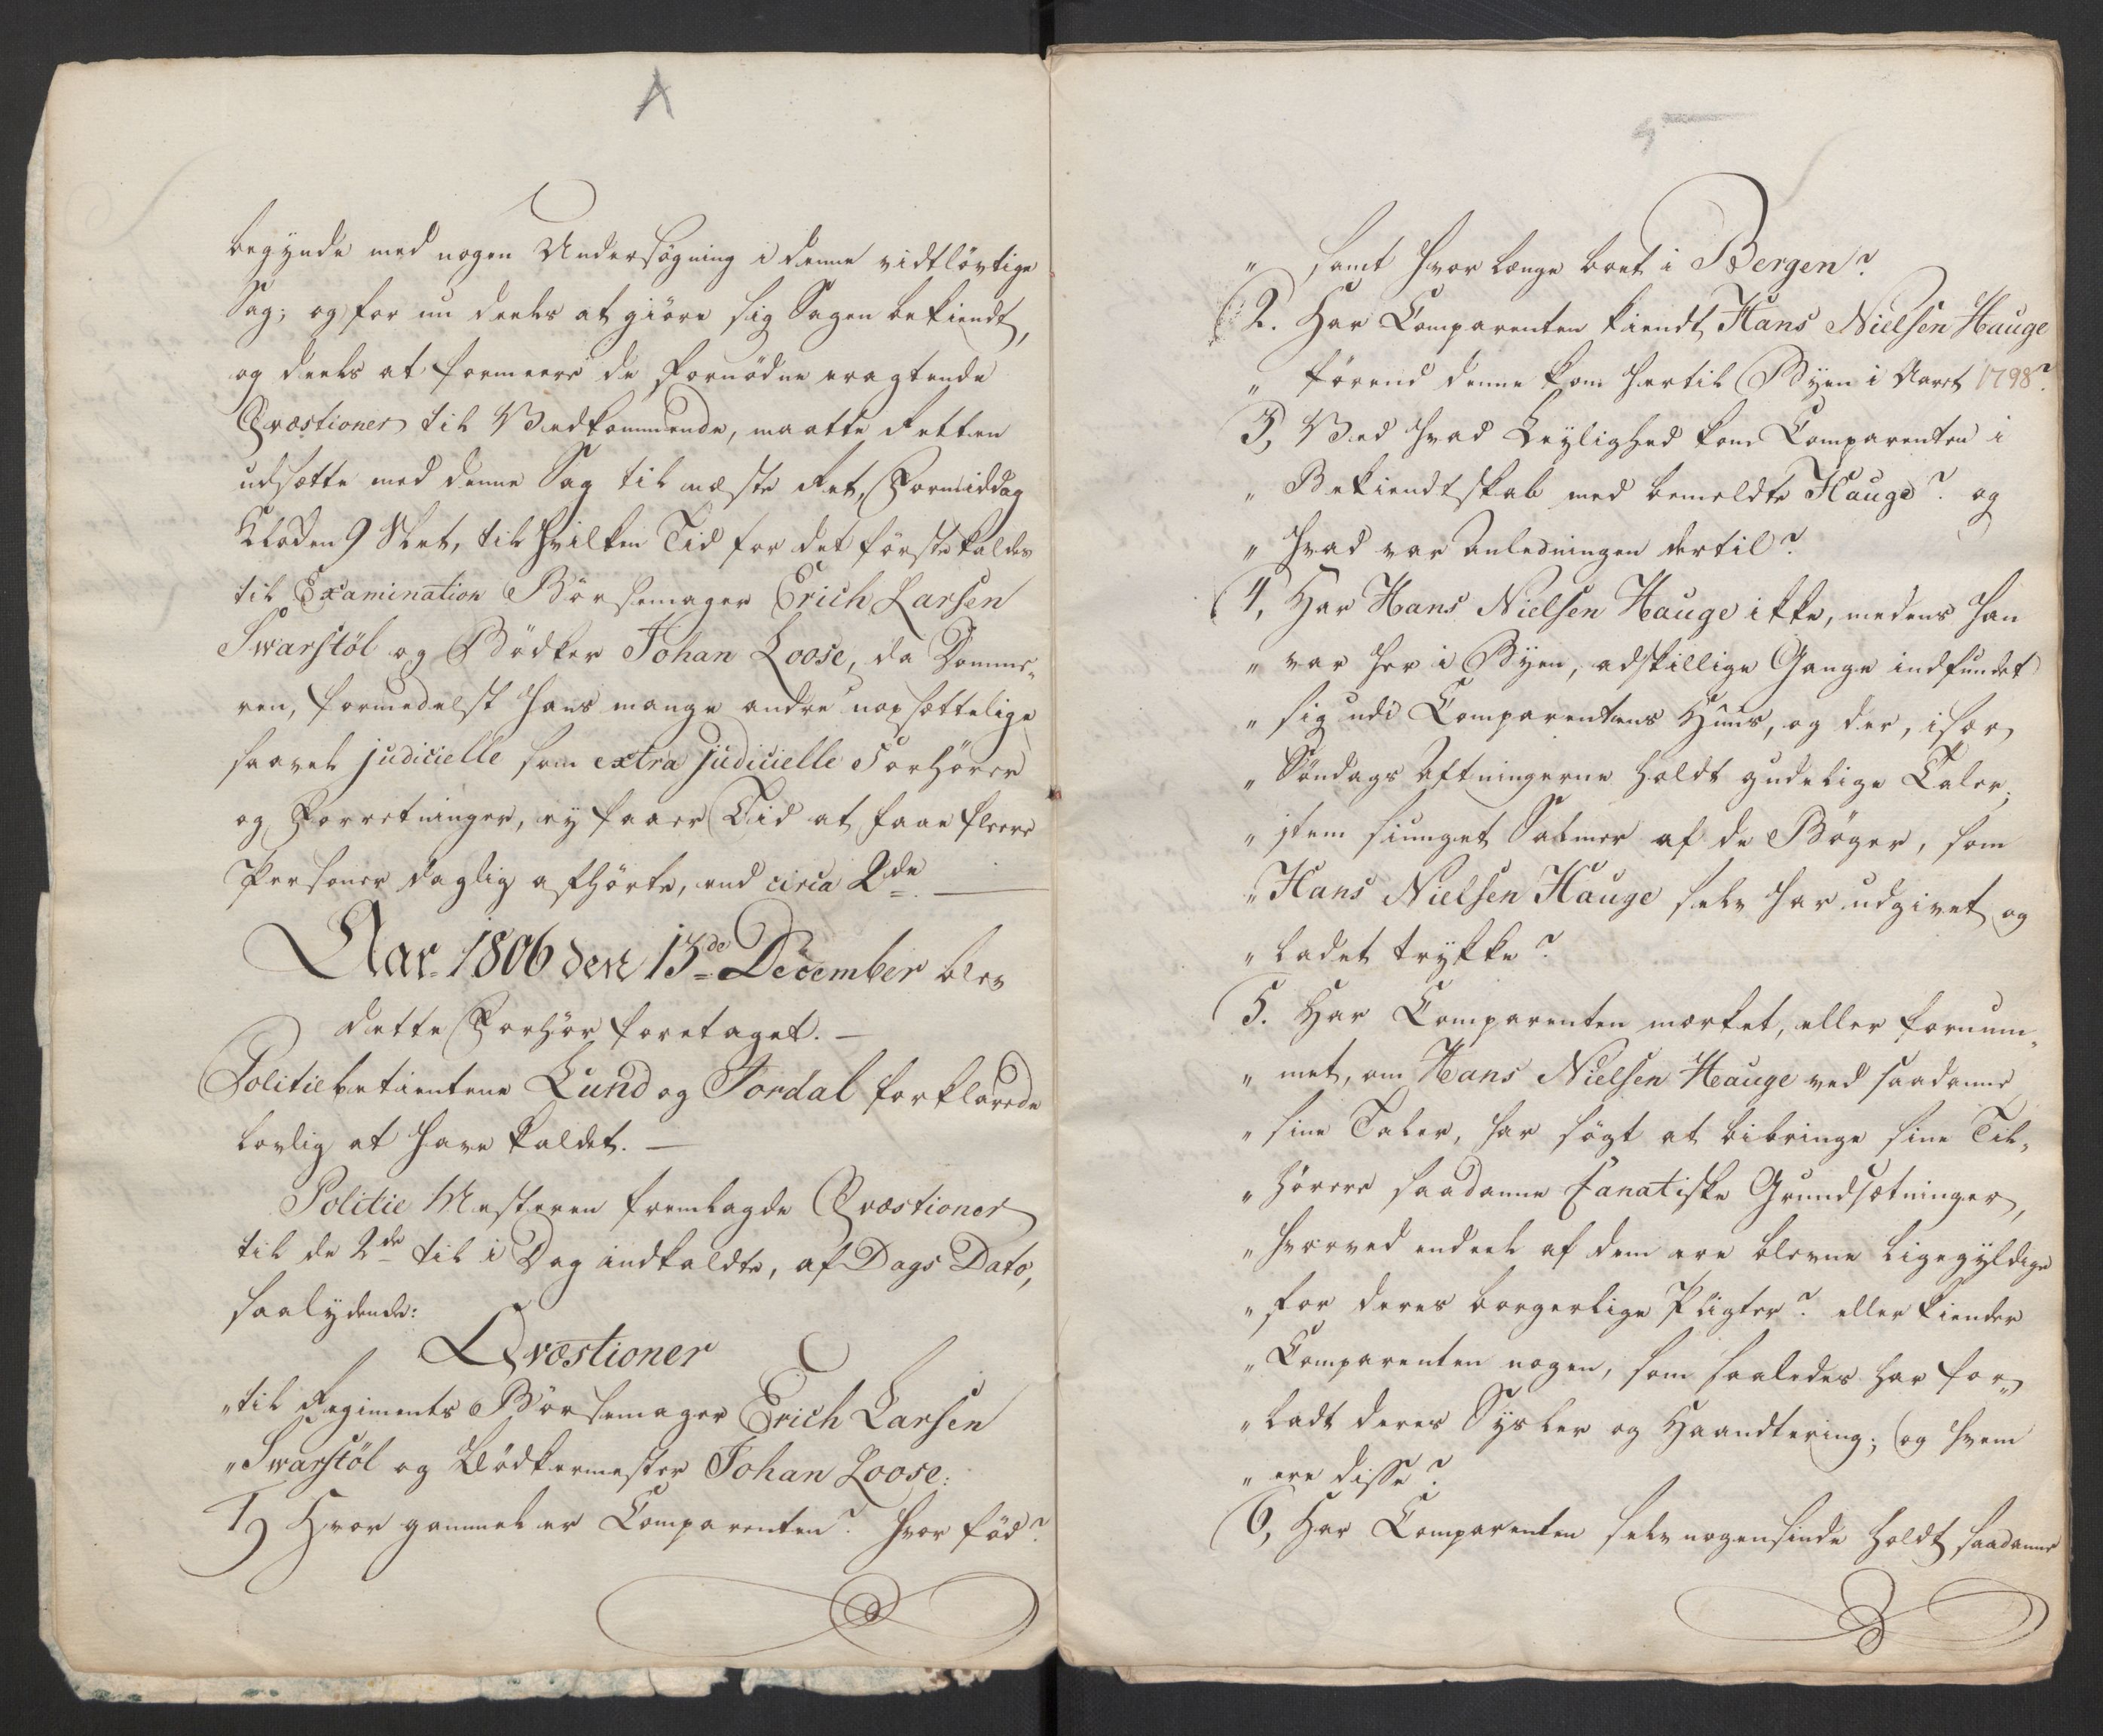 begynde med nogen Undersøgning i denne vidtløvtige
Sag; og for nu deels at giöre sig Sagen bekiendt,
og deels at formeere de fornödne eragtende
Qvæstioner til Vedkommende, maatte Retten
udsætte med denne Sag til næste Ret, Formiddag
Klokken 9 Slet, til hvilken Tid for det förste kaldes
til Examination Börsemager Erich Larsen
Swarstöl og Bödker Johan Loose, da Domme„
ren, formedelst hans mange andre uopsættelige
saavel judicielle som extra judicielle Forhörer
og Forretninger, ey faaer Tid at faae fleere
Personer daglig afhörte, end circa 2de. —
Aar 1806 den 13de December blev
dette Forhör foretaget. —
Politiebetientene Lund og Jordal forklarede
lovlig at have kaldet. —
Politie Mesteren fremlagde Qvæstioner
til de 2de til i Dag indkaldte, af Dags Dato,
saalydende:
Qvæstioner
„til Regiments Börsemager Erich Larsen
„Swarstöl og Bödkermester Johan Loose:
1, Hvor gammel er Comparenten? hvor föd?
„ samt hvor længe boet i Bergen?
2. Har Comparenten kiendt Hans Nielsen Hauge
„ förend denne kom hertil Byen i Aaret 1798?
3, Ved hvad Leylighed kom Comparenten i
„ Bekiendtskab med bemeldte Hauge? og
„ hvad var Anledningen dertil?
4, Har Hans Nielsen Hauge ikke, medens han
„ var her i Byen, adskillige Gange indfundet
„ sig udi Comparentens Huus, og der, især
„ Söndags Aftningerne holdt gudelige Taler;
„ item siunget Salmer af de Böger, som
„ Hans Nielsen Hauge selv har udgivet og
„ ladet trykke?
5. Har Comparenten mærket, eller fornum„
„ met, om Hans Nielsen Hauge ved saadanne
„ sine Taler, har sögt at bibringe sine Til„
„ hörere saadanne fanatiske Grundsætninger,
„ hvorved endeel af dem ere blevne ligegyldige
„ for deres borgerlige Pligter? eller kiender
„ Comparenten nogen, som saaledes har for„
„ ladt deres Sysler og Haandtering; og hvem
„ ere disse?
6, Har Comparenten selv nogensinde holdt saadanne